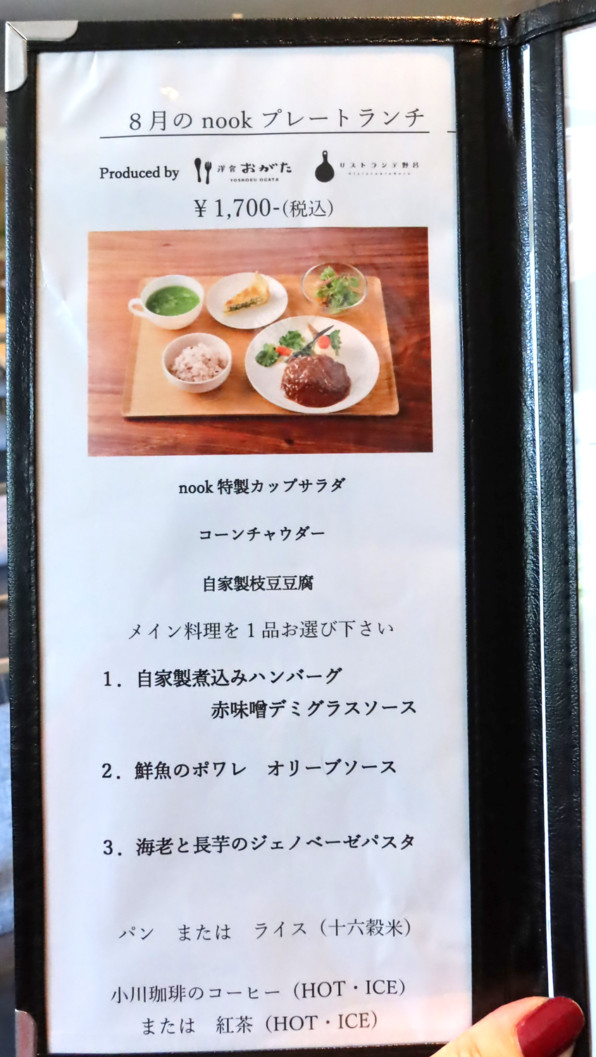 8月の nook プレートランチ
Produced by 洋食 おがた YOSHOKU OGATA リストランテ野呂
¥1,700-(税込)
nook 特製カップサラダ
コーンチャウダー
自家製枝豆豆腐
メイン料理を1品お選び下さい
1．自家製煮込みハンバーグ
赤味噌デミグラスソース
2．鮮魚のポワレ　オリーブソース
3．海老と長芋のジェノベーゼパスタ
パン　または　ライス（十六穀米）
小川珈琲のコーヒー（HOT・ICE）
または　紅茶（HOT・ICE）